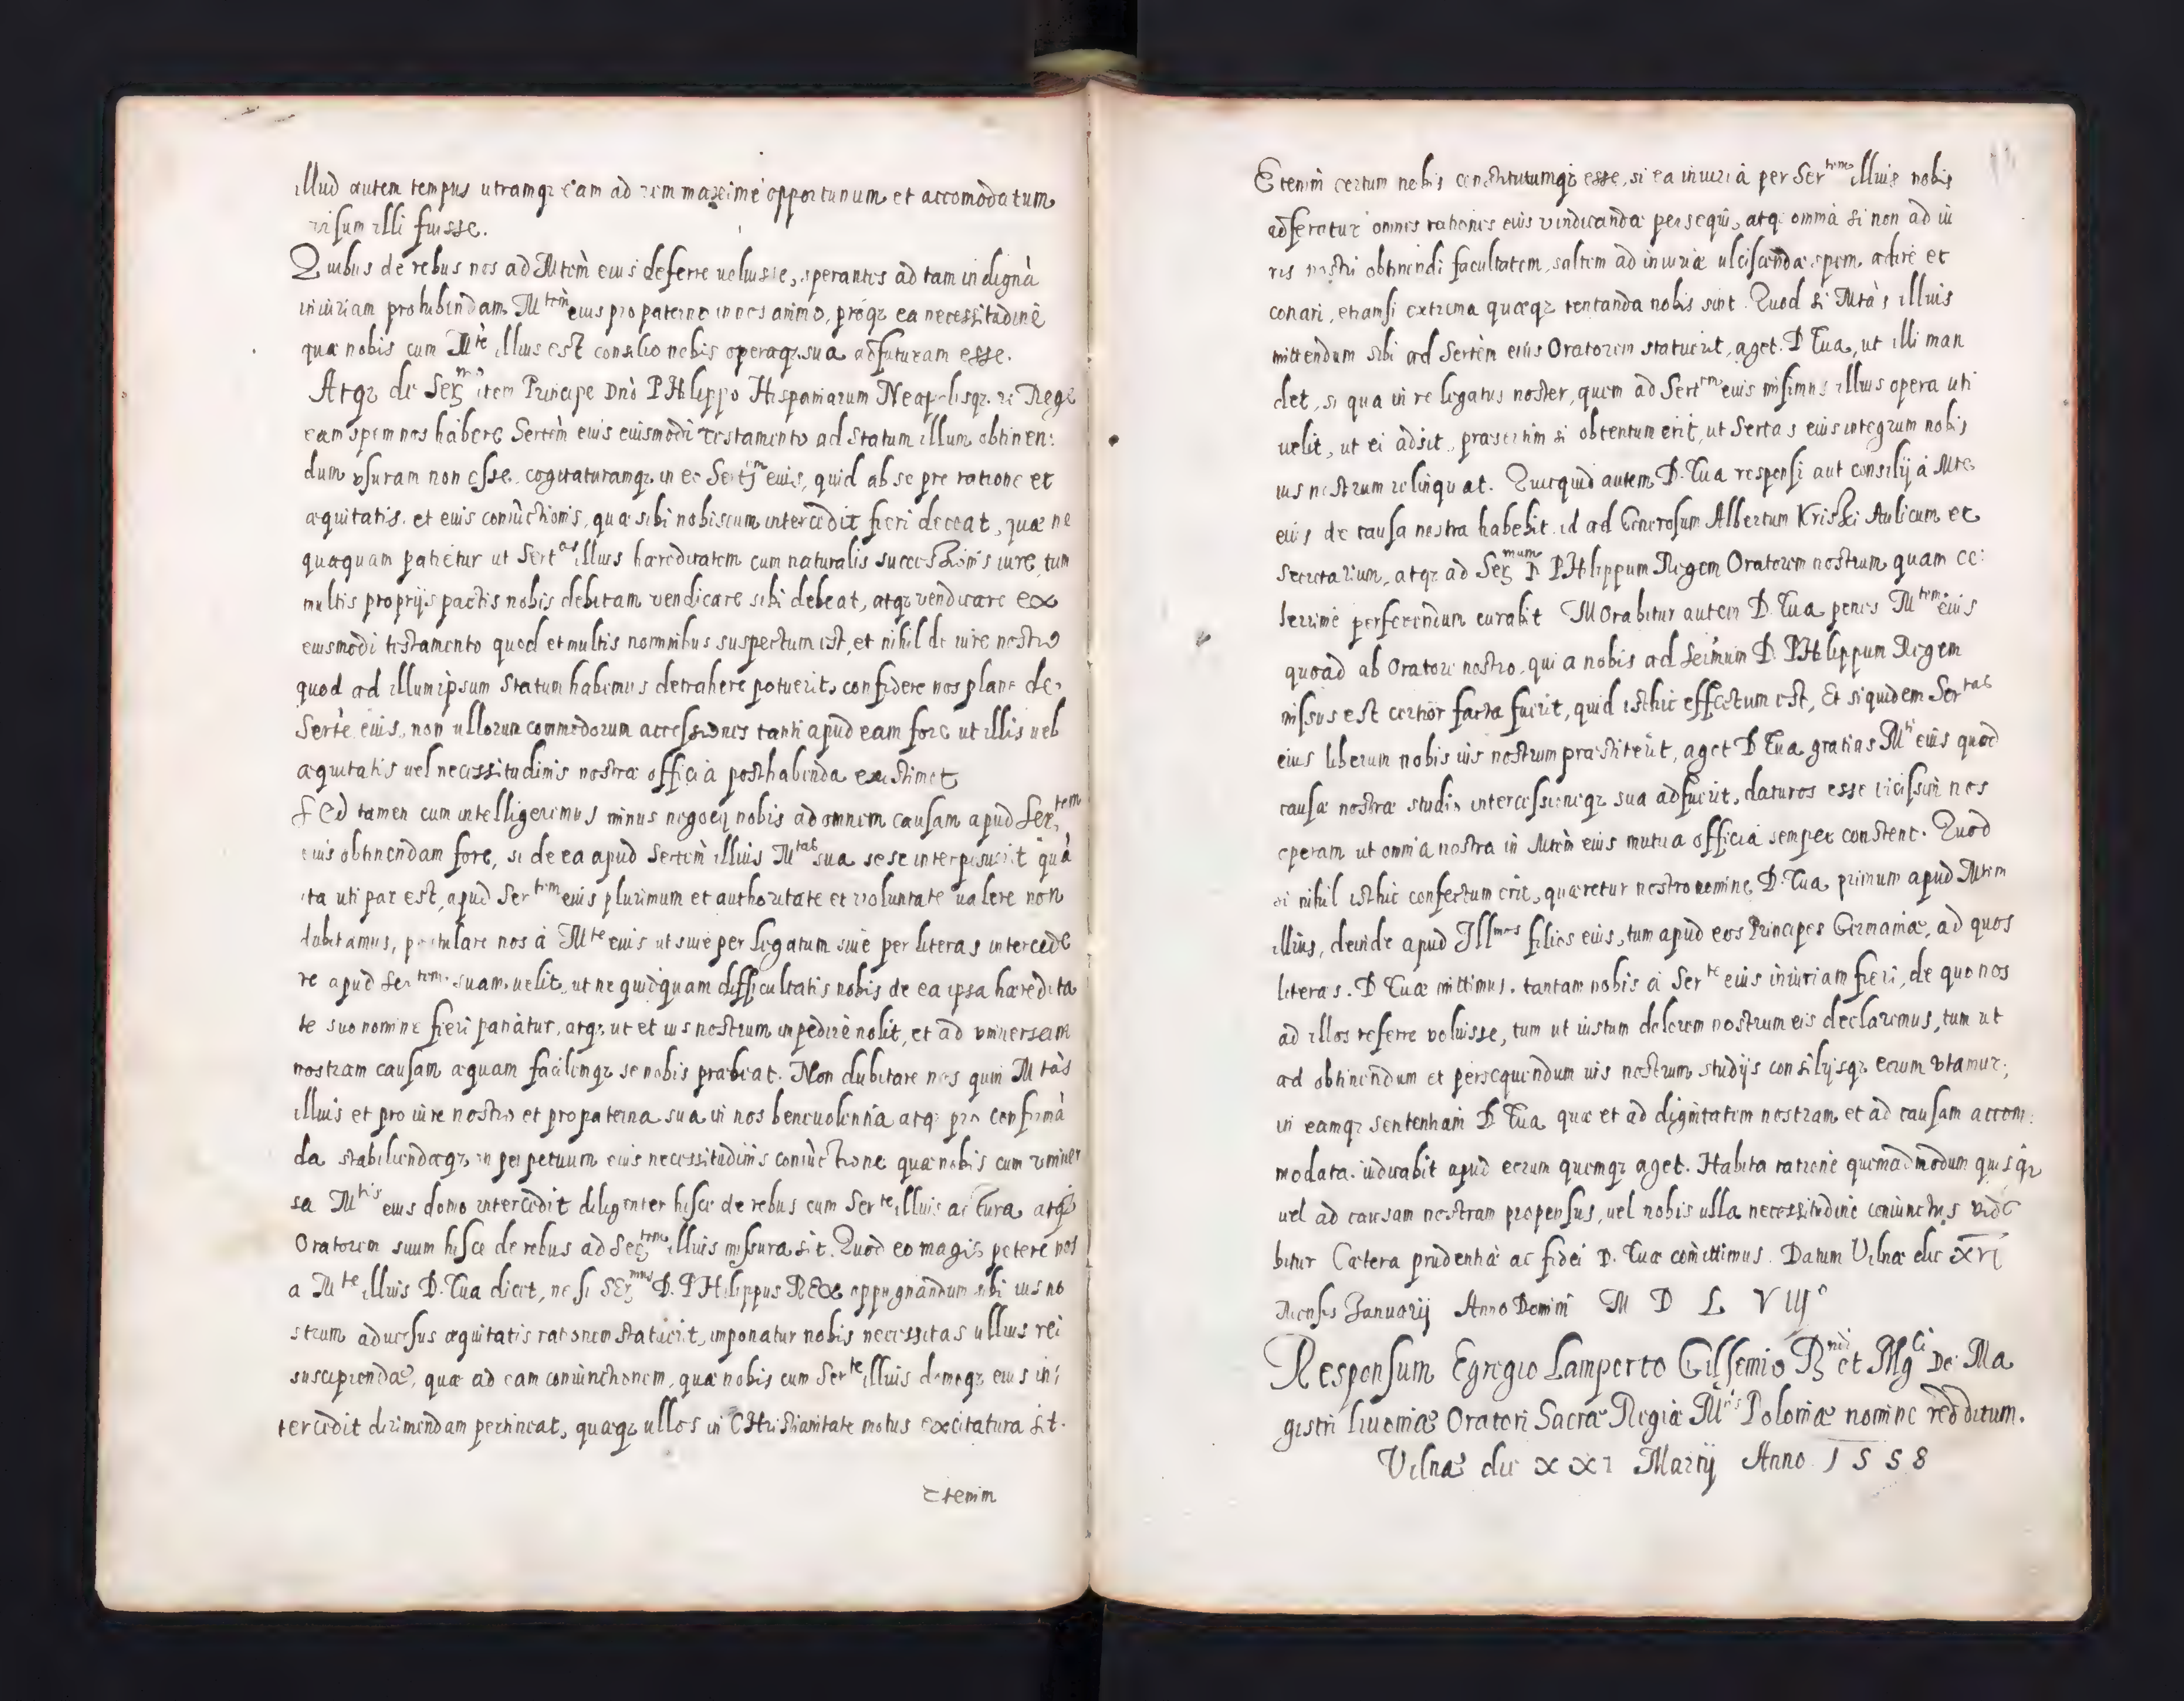 illud autem tempus utramqz eam ad rem maxime opportunum et accomodatum
visum illi fuisse.
Quibus de rebus nos ad Mtem eius deferre voluisse, sperantes ad tam indignā
iniuriam prohibendam Mtem eius pro paterno in nos animo, proqz ea necessitudine
quæ nobis cum Mte illius est consilio nobis operaqz sua adfuturam esse.
Atqz de Sermo item Principe Dno PHilippo Hispaniarum Neapolisqz Rege
eam spem nos habere Sertem eius eiusmodi testamento ad statum illum obtinen:
dum usuram non esse, cogitaturamqz in eo Sertem eius, quid ab se pro ratione et
æquitatis et eius coniunctionis, quæ sibi nobiscum intercedit fieri deceat, quæ ne
quaquam patietur ut Sertas illius hæreditatem cum naturalis successionis iure, tum
multis proprijs pactis nobis debitam vendicare sibi debeat, atqz vendicare ex
eiusmodi testamento quod et multis nominibus suspectum est, et nihil de iure nostro
quod ad illum ipsum statum habemus detrahere potuerit, confidere nos plane de
Serte eius, non ullorum commodorum accessiones tanti apud eam fore ut illis vel
æquitatis vel necessitudinis nostræ officia posthabenda existimet
Sed tamen cum intelligeremus minus negocij nobis ad omnem causam apud Sertem
eius obtinendam fore, si de ea apud Sertem illius Mtas sua sese interposuerit quā
ita uti par est, apud Sertem eius plurimum et authoritate et voluntate valere non
dubitamus, postulare nos à Mte eius ut sive per legatum sive per literas intercede
re apud Sertem suam velit, ut ne quidquam difficultatis nobis de ea ipsa hæredita
te suo nomine fieri patiatur, atqz ut et ius nostrum impedire nolit, et ad universam
nostram causam æquam facilemqz se nobis præbeat. Non dubitare nos quin Mtas
illius et pro iure nostro et pro paterna sua in nos benevolentia atqz pro confirmā
da stabiliendaqz in perpetuum eius necessitudinis coniunctione quæ nobis cum univer
sa Mtis eius domo intercedit diligenter hisce de rebus cum Serte illius actura atqz
Oratorem suum hisce de rebus ad Sertem illius missura sit. Quod eo magis petere nos
a Mte illius D. Tua dicet, ne si SErmus D. PHilippus REx oppugnandum sibi ius no
strum adversus æquitatis rationem statuerit, imponatur nobis necessitas ullius rei
suscipiendæ, quæ ad eam coniunctionem, quæ nobis cum Serte illius domoqz eius in:
tercedit dirimendam pertineat, quæqz ullos in CHristianitate motus excitatura sit.
Etenim
Etenim certum nobis constitutumqz esse, si ea iniuria per Sertem illius nobis
adferatur omnes rationes eius vindicandæ persequi, atqz omnia si non ad iu
ris nostri obtinendi facultatem, saltem ad iniuriæ ulciscendæ spem, adire et
conari, etiamsi extrema quæqz tentanda nobis sint. Quod si Mtas illius
mittendum sibi ad Sertem eius Oratorem statuerit, aget D Tua, ut illi man
det, si qua in re legatus noster, quem ad Sertem eius misimus illius opera uti
velit, ut ei adsit, præsertim si obtentum erit, ut Sertas eius integrum nobis
ius nostrum relinquat. Quicquid autem D. Tua responsi aut consilij à Mte
eius de causa nostra habebit id ad Generosum Albertum Kriski Aulicum et
Secretarium, atqz ad Sermum D PHilippum Regem Oratorem nostrum quam ce:
lerrime perferendum curabit Morabitur autem D. Tua penes Mtem eius
quoad ab Oratore nostro, qui a nobis ad Sermum D. PHilippum Regem
missus est certior facta fuerit, quid isthic effectum est, Et siquidem Sertas
eius liberum nobis ius nostrum præstiterit, aget D Tua gratias Mti eius quod
causæ nostræ studio intercessioneqz sua adfuerit, daturos esse vicissim nos
operam ut omnia nostra in Mtem eius mutua officia semper constent. Quod
si nihil isthic confectum erit, quæretur nostro nomine D. Tua primum apud Mtem
illius, deinde apud Illmos filios eius, tum apud eos Principes Germaniæ, ad quos
literas D Tuæ mittimus, tantam nobis à Serte eius iniuriam fieri, de quo nos
ad illos referre voluisse, tum ut iustum dolorem nostrum eis declaremus, tum ut
ad obtinendum et persequendum ius nostrum studijs consilijsqz eorum utamur;
in eamqz sententiam D Tua quæ et ad dignitatem nostram et ad causam accom:
modata iudicabit apud eorum quemqz aget. Habita ratione quemadmodum quisqz
vel ad causam nostram propensus, vel nobis ulla necessitudine coniunctus vide
bitur Cætera prudentiæ ac fidei D. Tuæ comittimus. Datum Vilnæ die XVI
Mensis Januarij Anno Domini M D L VIIIo
Responsum Egregio Lamperto Gilsemio Rndi et Mgci Dni Ma
gistri Livoniæ Oratori Sacræ Regiæ Mtis Poloniæ nomine redditum.
Vilnæ die XXI Martij Anno 1558